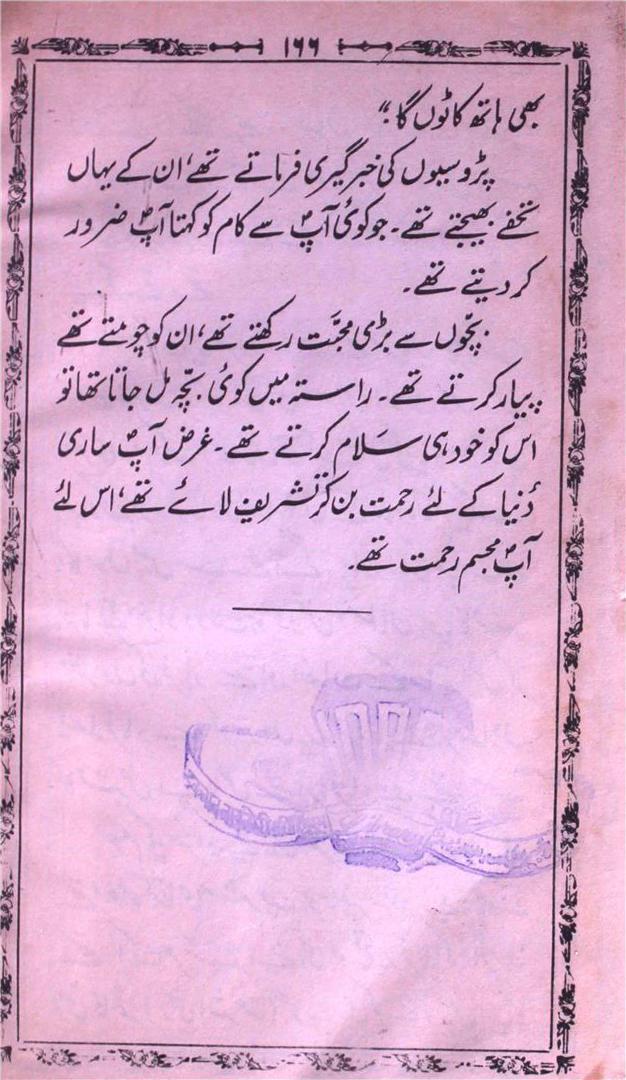 ۱۶۶
بھی ہاتھ کاٹوں گا؛“
پڑوسیوں کی خبر گیری فرماتے تھے، ان کے یہاں
تحفے بھیجتے تھے۔ جو کوئی آپؐ سے کام کو کہتا آپؐ ضرور
کر دیتے تھے۔
بچّوں سے بڑی محبّت رکھتے تھے، ان کو چومتے تھے
پیار کرتے تھے۔ راستہ میں کوئی بچّہ مل جاتا تھا تو
اس کو خود ہی سَلام کرتے تھے۔ غرض آپؐ ساری
دُنیا کے لئے رحمت بن کر تشریف لائے تھے، اس لئے
آپؐ مجسم رحمت تھے۔